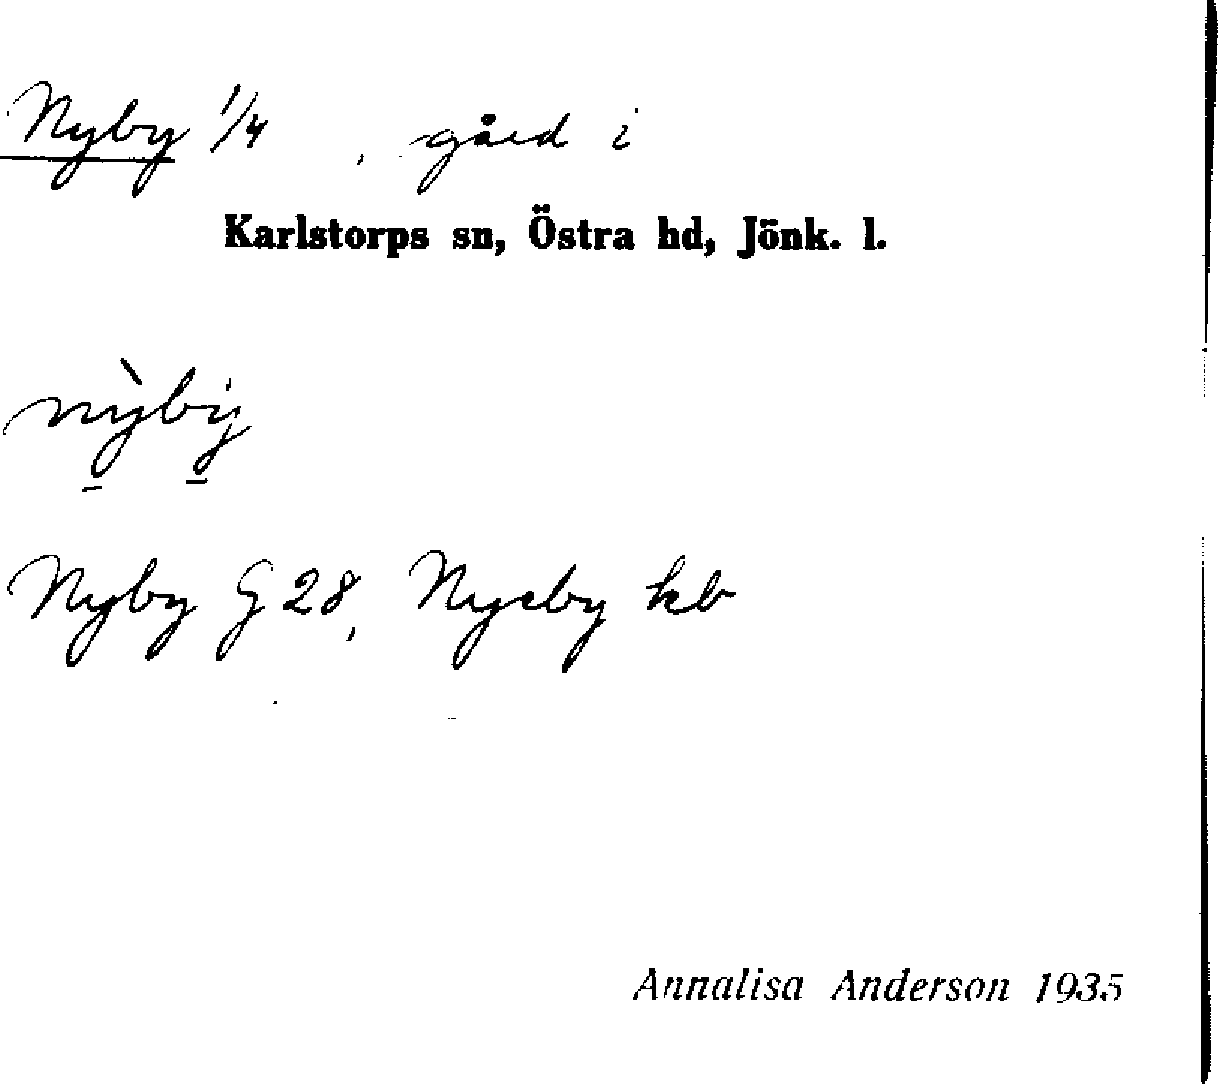 Nyby 1/4, gård i
Karlstorps sn, Östra hd, Jönk. l.
nỳby̍
Nyby G 28, Nyeby kb
Annalisa Anderson 1935